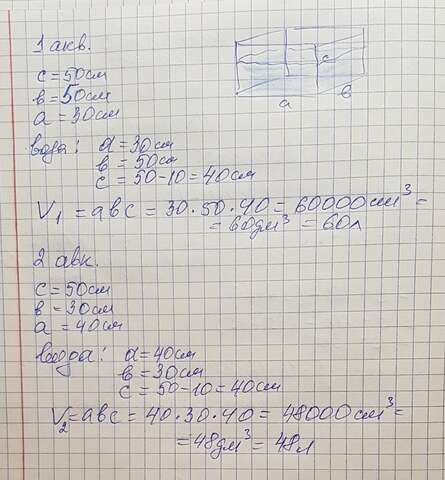 1 акв.
c = 50см
в = 50см
a = 30см
вода: a = 30см
в = 50см
c = 50-10 = 40см
V₁ = aвc = 30·50·40 = 60000см³ =
= 60дм³ = 60л
2 авк.
c = 50см
в = 30см
a = 40см
вода: a = 40см
в = 30см
c = 50-10 = 40см
V₂ = aвc = 40·30·40 = 48000см³ =
= 48дм³ = 48л
c
a
в